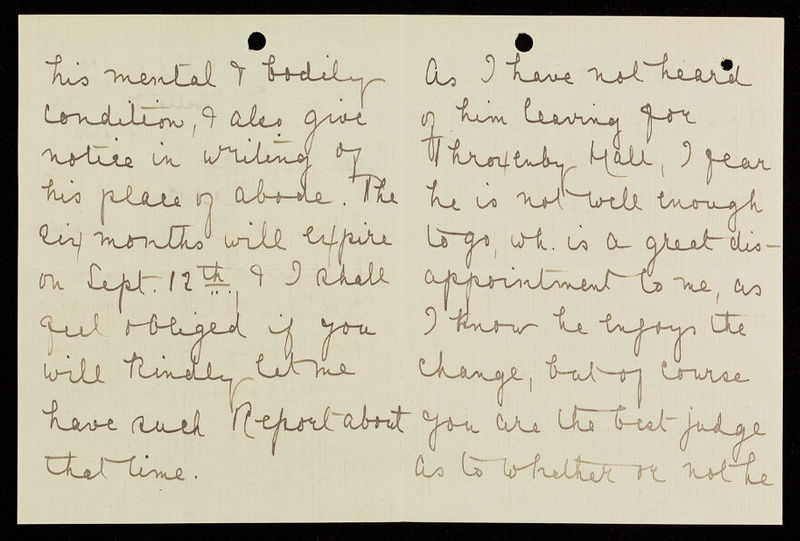 his mental & bodily
condition, & also give
notice in writing of
his place of abode. The
six months will expire
on Sept. 12th & I shall
feel obliged if you
will kindly let me
have such Report about
that time.
As I have not heard
of him leaving for
Throxenby Hall, I fear
he is not well enough
to go, wh. is a great dis-
appointment to me, as
I know he enjoys the
change, but of course
you are the best judge
as to whether or not he